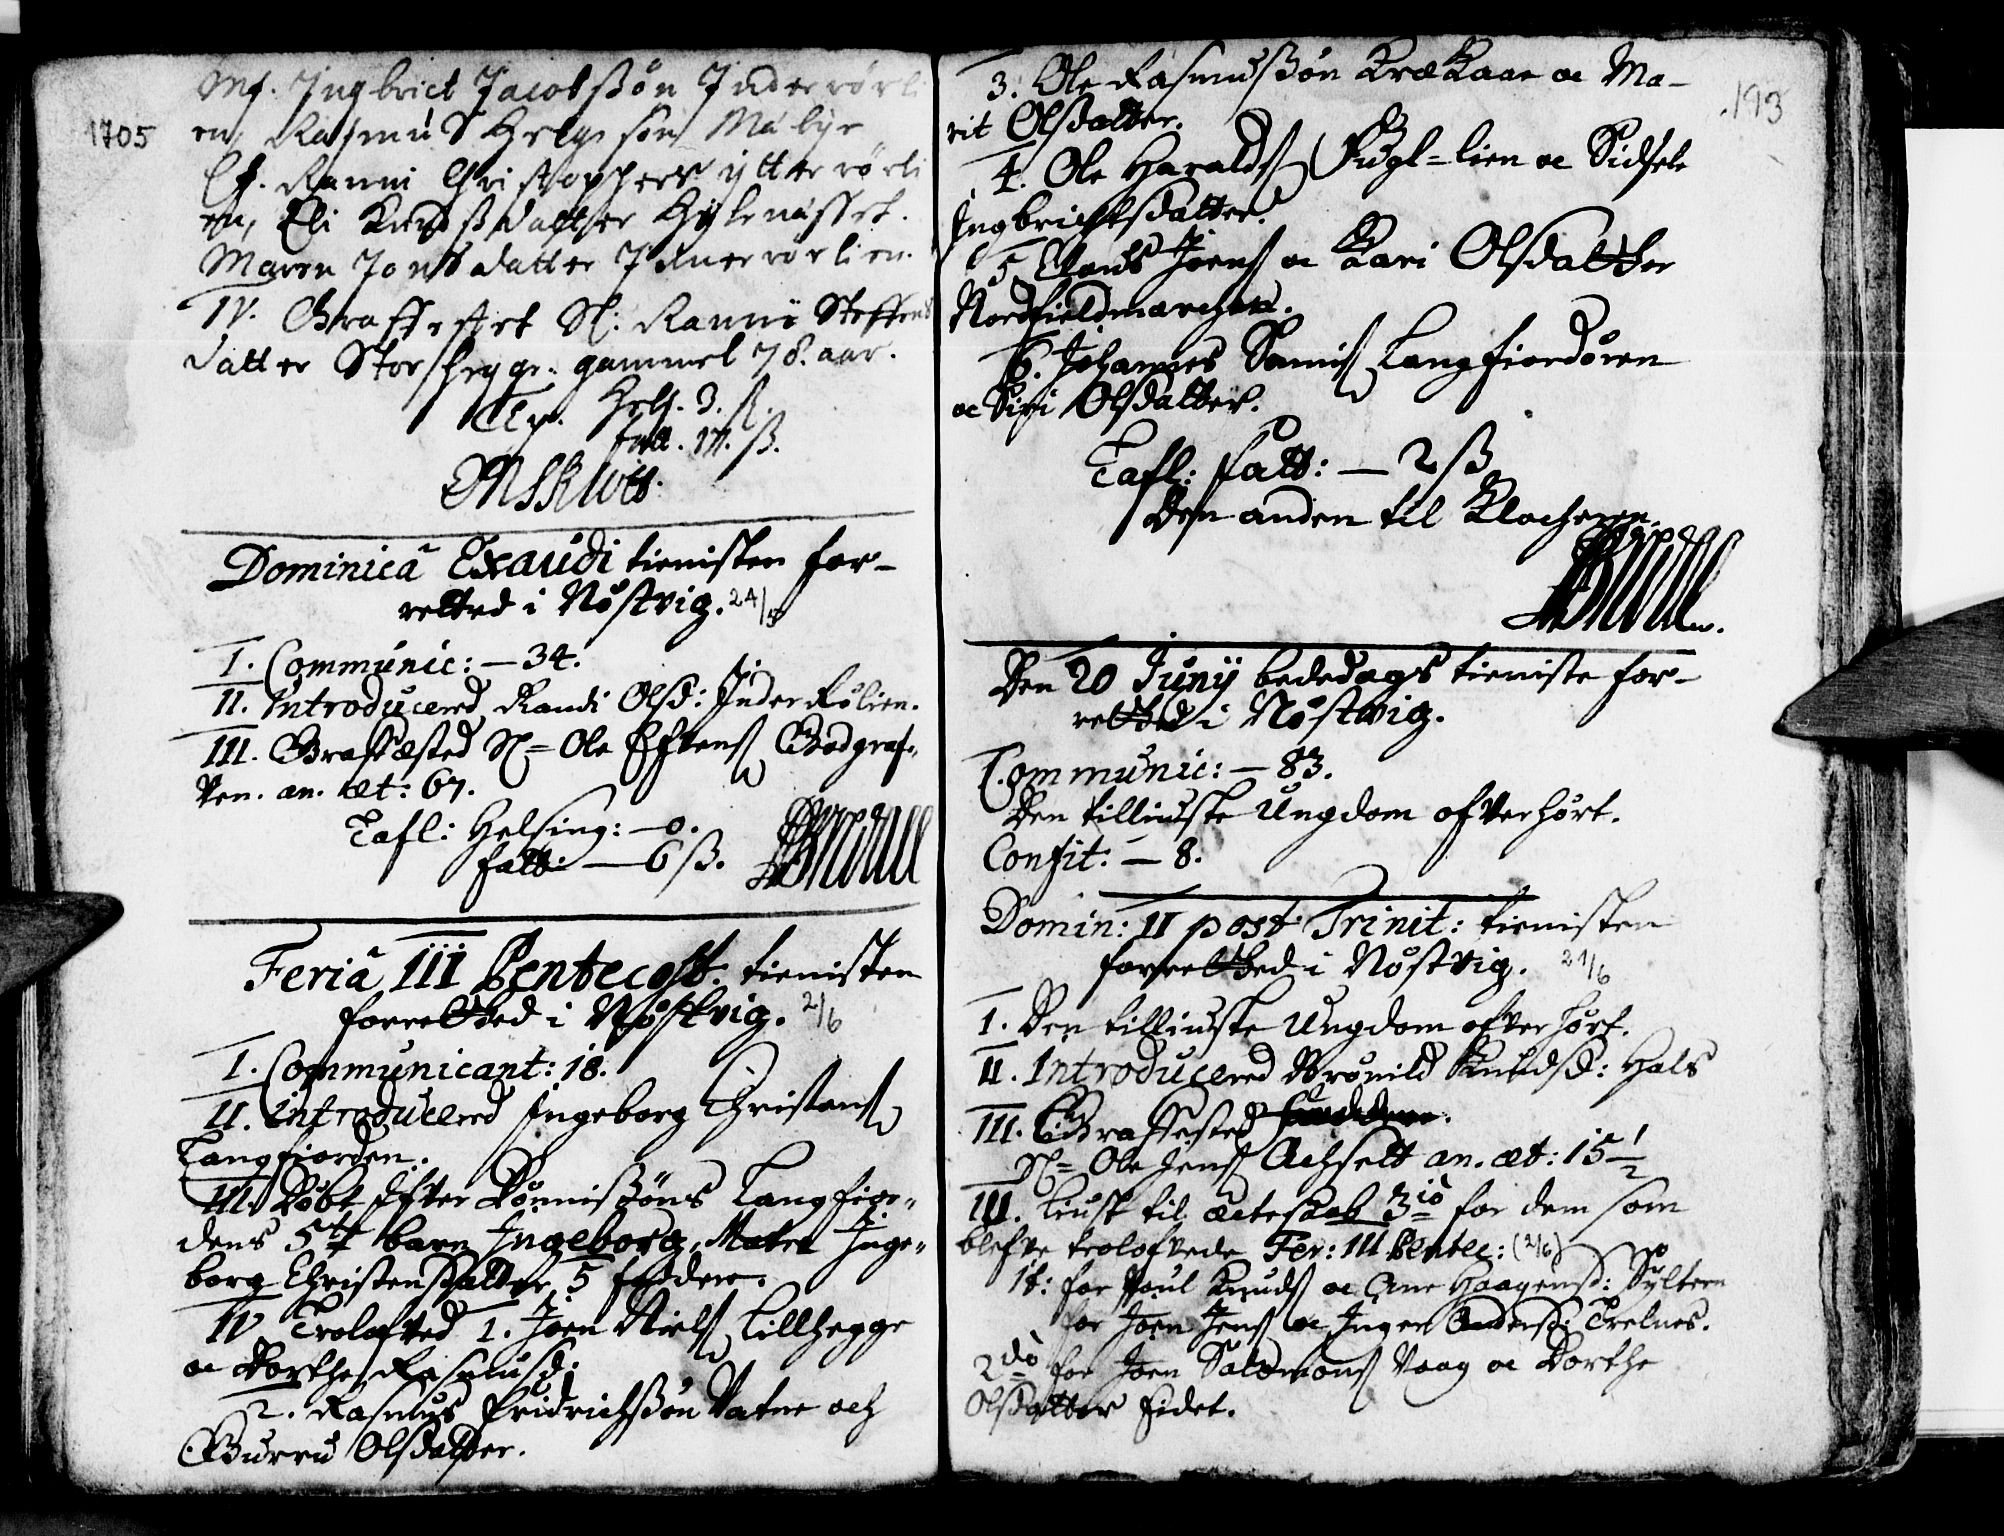 1705
Mf. Ingbrict Jacobssøn Inderrørli
en, Rasmus Helgesøn Målye
Lf. Ranni Christophers ytterrørli
en, Eli Knudsdatter Hylenæsset.
Maren Jonsdatter Inderrørlien.
IV. Graffæstet Sl: Ranni Steffens
datter Storhegge. gammel 78. aar.
Hels. 3. ß.
fatt. 17. ß.
Dominicâ Exaudi tienisten for-
retted i Nøstvig. 24/5
I. Communic: – 34.
II. Introducered Randi Olsd: Inder Rølien.
III. Graffæsted Sl= Ole Ellens
an. æt: 67.
Tafl: Helsing: – 0.
fatt: – 6 ß.
Feriâ III Pentecost: tienisten
forretted i Nøstvig. 2/6
I. Communicant: 18.
II. introducered Ingeborg Christens
Langfiorden.
III. Døbt Peter Rønnissøns Langfior-
dens 5te barn Ingeborg, Mater Inge-
borg Christensdatter, 5 faddere.
IV Trolofved 1. Joen Niels Lillhegge
oc Dorthe Rasmusd:
2. Rasmus Fridrichssøn Vatne och
Gurru Olsdatter.
193
3. Ole Rasmussøn Krækaae oc Ma-
rit Olsdatter.
4. Ole Haralds Fugl=lien oc Sidsele
Ingbrichtsdatter.
5. Claus Joens oc Kari Olsdatter
Nordfieldmarchen.
6. Johannes Samis Langfiordøren
oc Siri Olsdatter.
Tafl: fatt: – 2 ß
Den anden til Klocheren.
Den 20 Junij bededags tieniste for-
retted i Nøstvig.
Communic: – 83.
Den tilliuste Ungdom ofverhørt.
Confit: – 8.
Domin: II post Trinit: tienisten
forretted i Nøstvig. 21/6
I. Den tilliuste Ungdom ofverhørt.
II. Introducered Brønild Knudsd: Hals
III. Graffæsted
Sl= Ole Jens Achselt an. æt: 15 1/2
III. Liust til ætteskab 3iô for dem som
blefve trolofvede Fer: III Pentec: (2/6)
1t: for Poul Knuds oc Ane Haagensd: Sylteen
for Joen Jens oc Inger Andersd: Trelnes.
2dô for Joen Salomons Vaag oc Dorthe
Olsdatter Eidet.